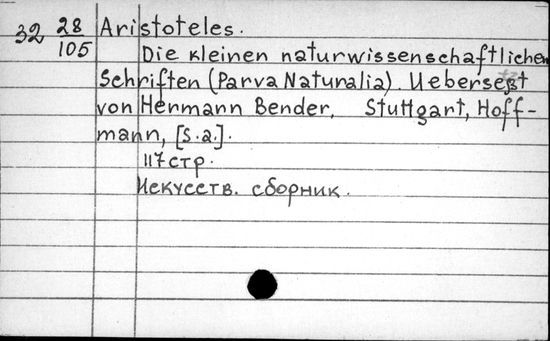 32 28 Aristoteles.
105 Die kleinen naturwissenschaftlichen
Schriften (Parva Naturalia). Uebersetzt
von Hermann Bender. Stuttgart, Hoff-
mann, [s.a.].
117 стр.
Искусств. сборник.